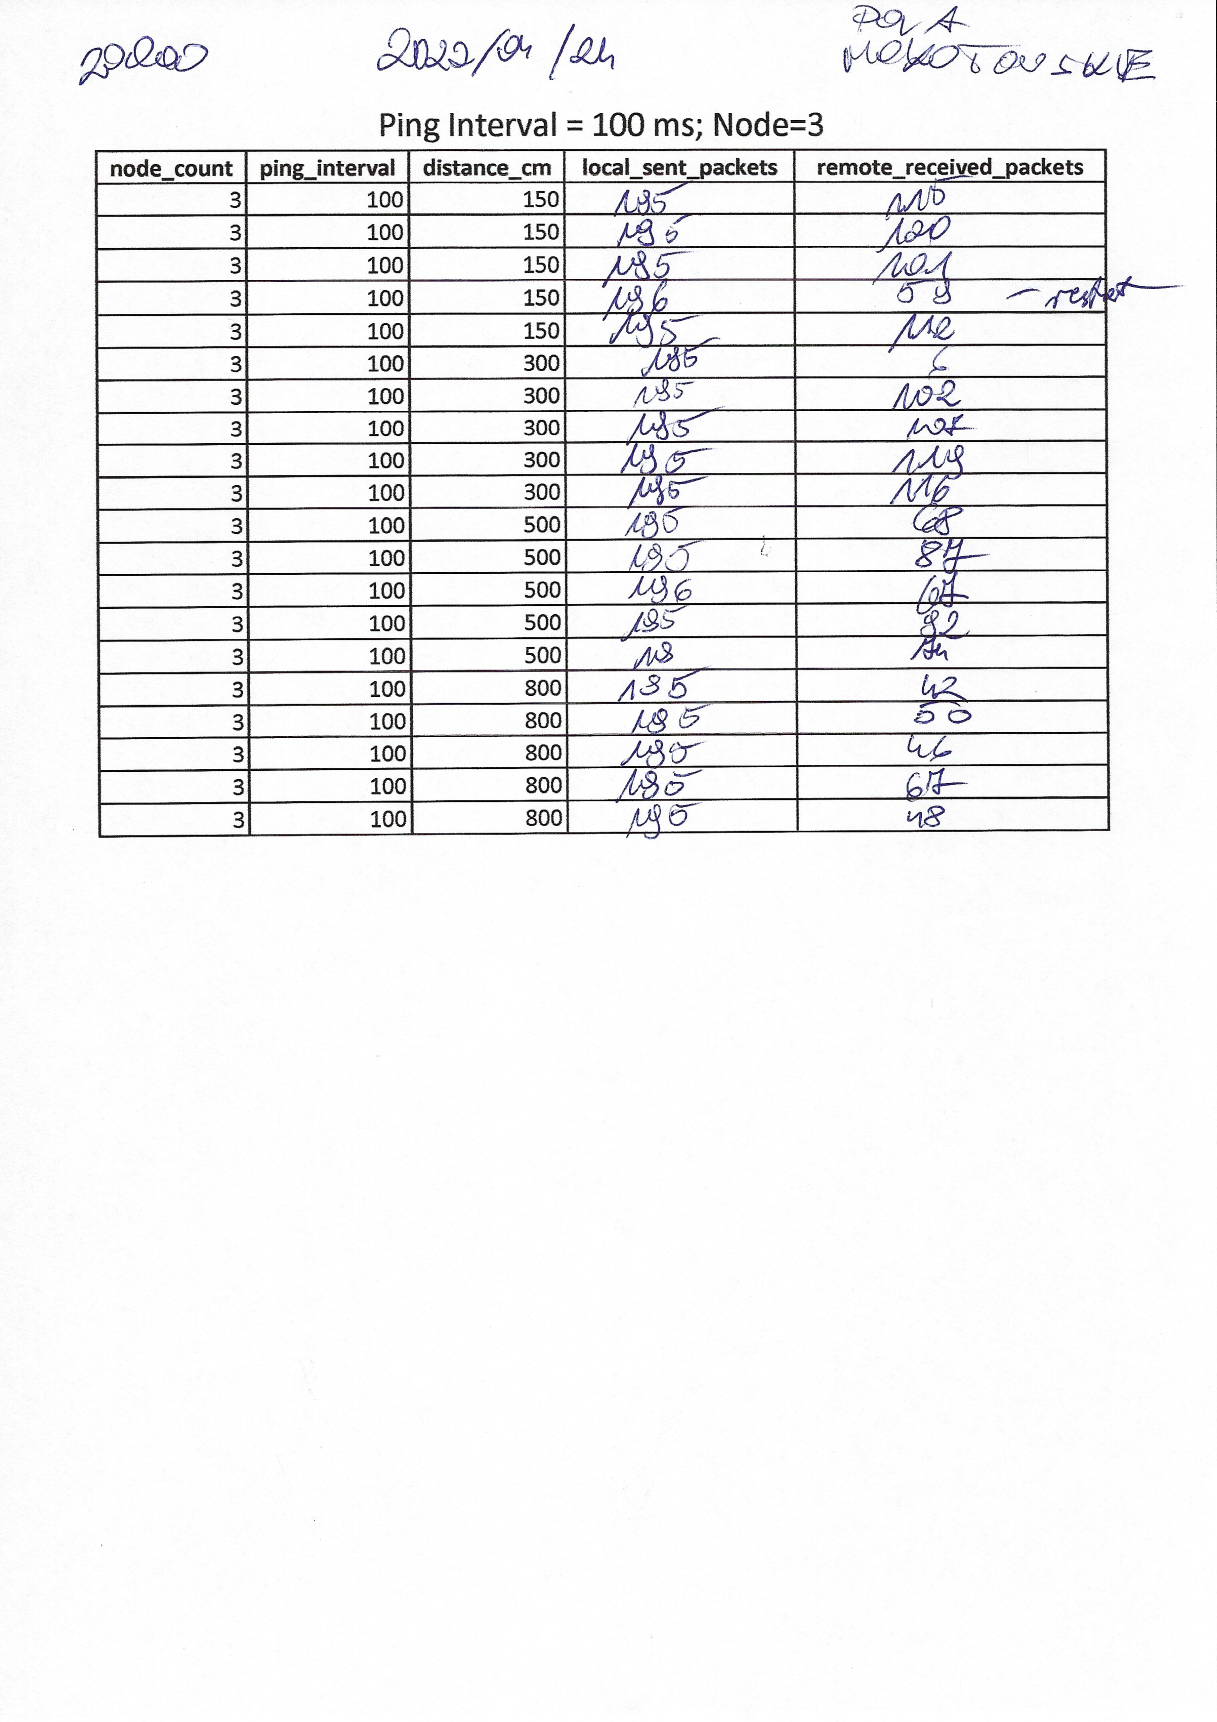 2022/04/24
POLA
MOKOTOWSKIE
Ping Interval = 100 ms; Node=3
node_count ping_interval distance_cm local_sent_packets remote_received_packets
3 100 150 195 115
3 100 150 195 120
3 100 150 195 101
3 100 150 196 59 — restart
3 100 150 195 112
3 100 300 195 6
3 100 300 195 102
3 100 300 195 107
3 100 300 195 119
3 100 300 195 116
3 100 500 195 68
3 100 500 195 87
3 100 500 196 67
3 100 500 195 92
3 100 500 118 74
3 100 800 195 42
3 100 800 195 50
3 100 800 195 46
3 100 800 195 67
3 100 800 195 48